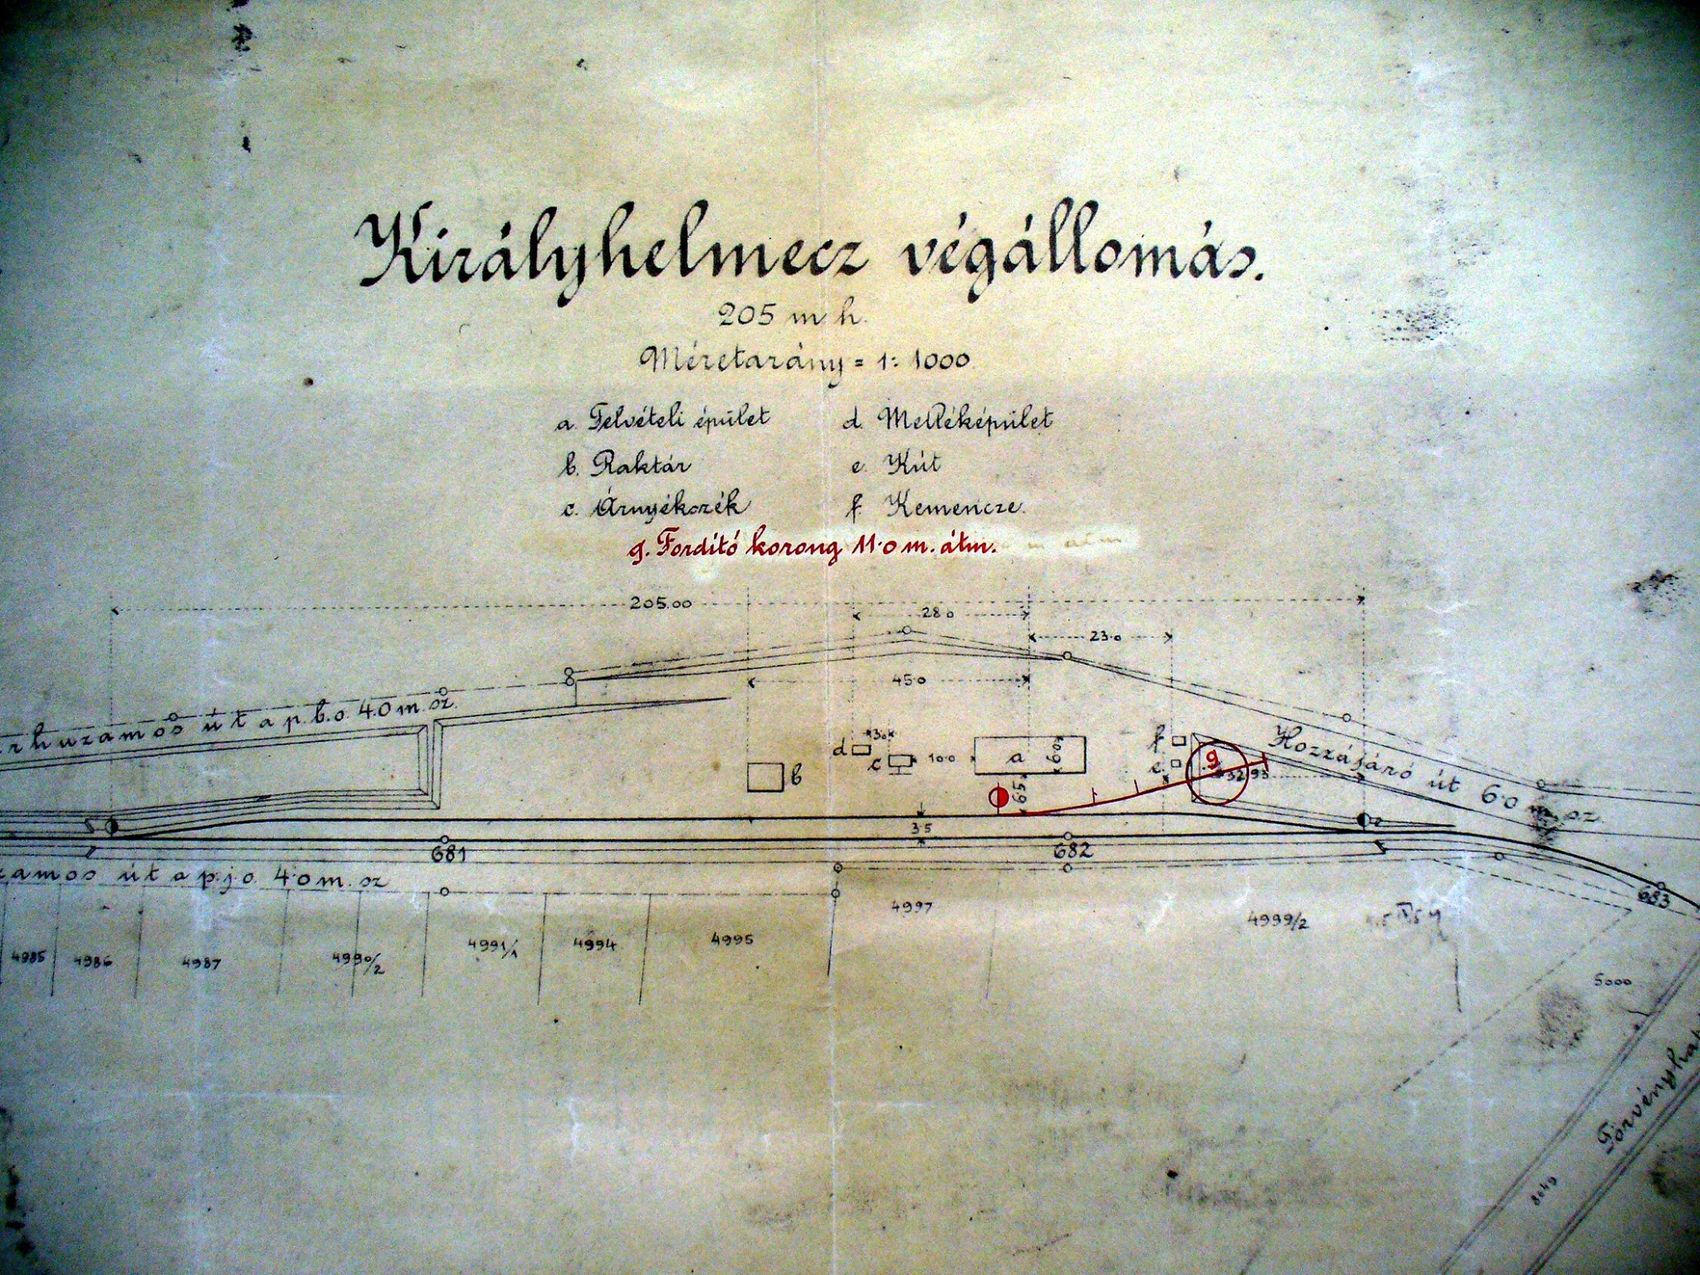 Királyhelmecz végállomás.
205 m h.
Méretarány = 1:1000
a. Felvételi épület
b. Raktár
c. Árnyékszék
d. Melléképület
e. Kút
f. Kemencze.
g. Fordító korong 11·0 m. átm.
205.00
28·0
23·0
45·0
út a p. b. o. 4·0 m. sz.
Hozzájáró út 6·0 m. sz.
d
3·0
c
10·0
a
6·0
f
e
g
32,93
b
6·5
3·5
681
682
683
út a p. j. o. 4·0 m. sz
4985
4986
4987
4990/2
4991/1
4994
4995
4997
4999/2
5000